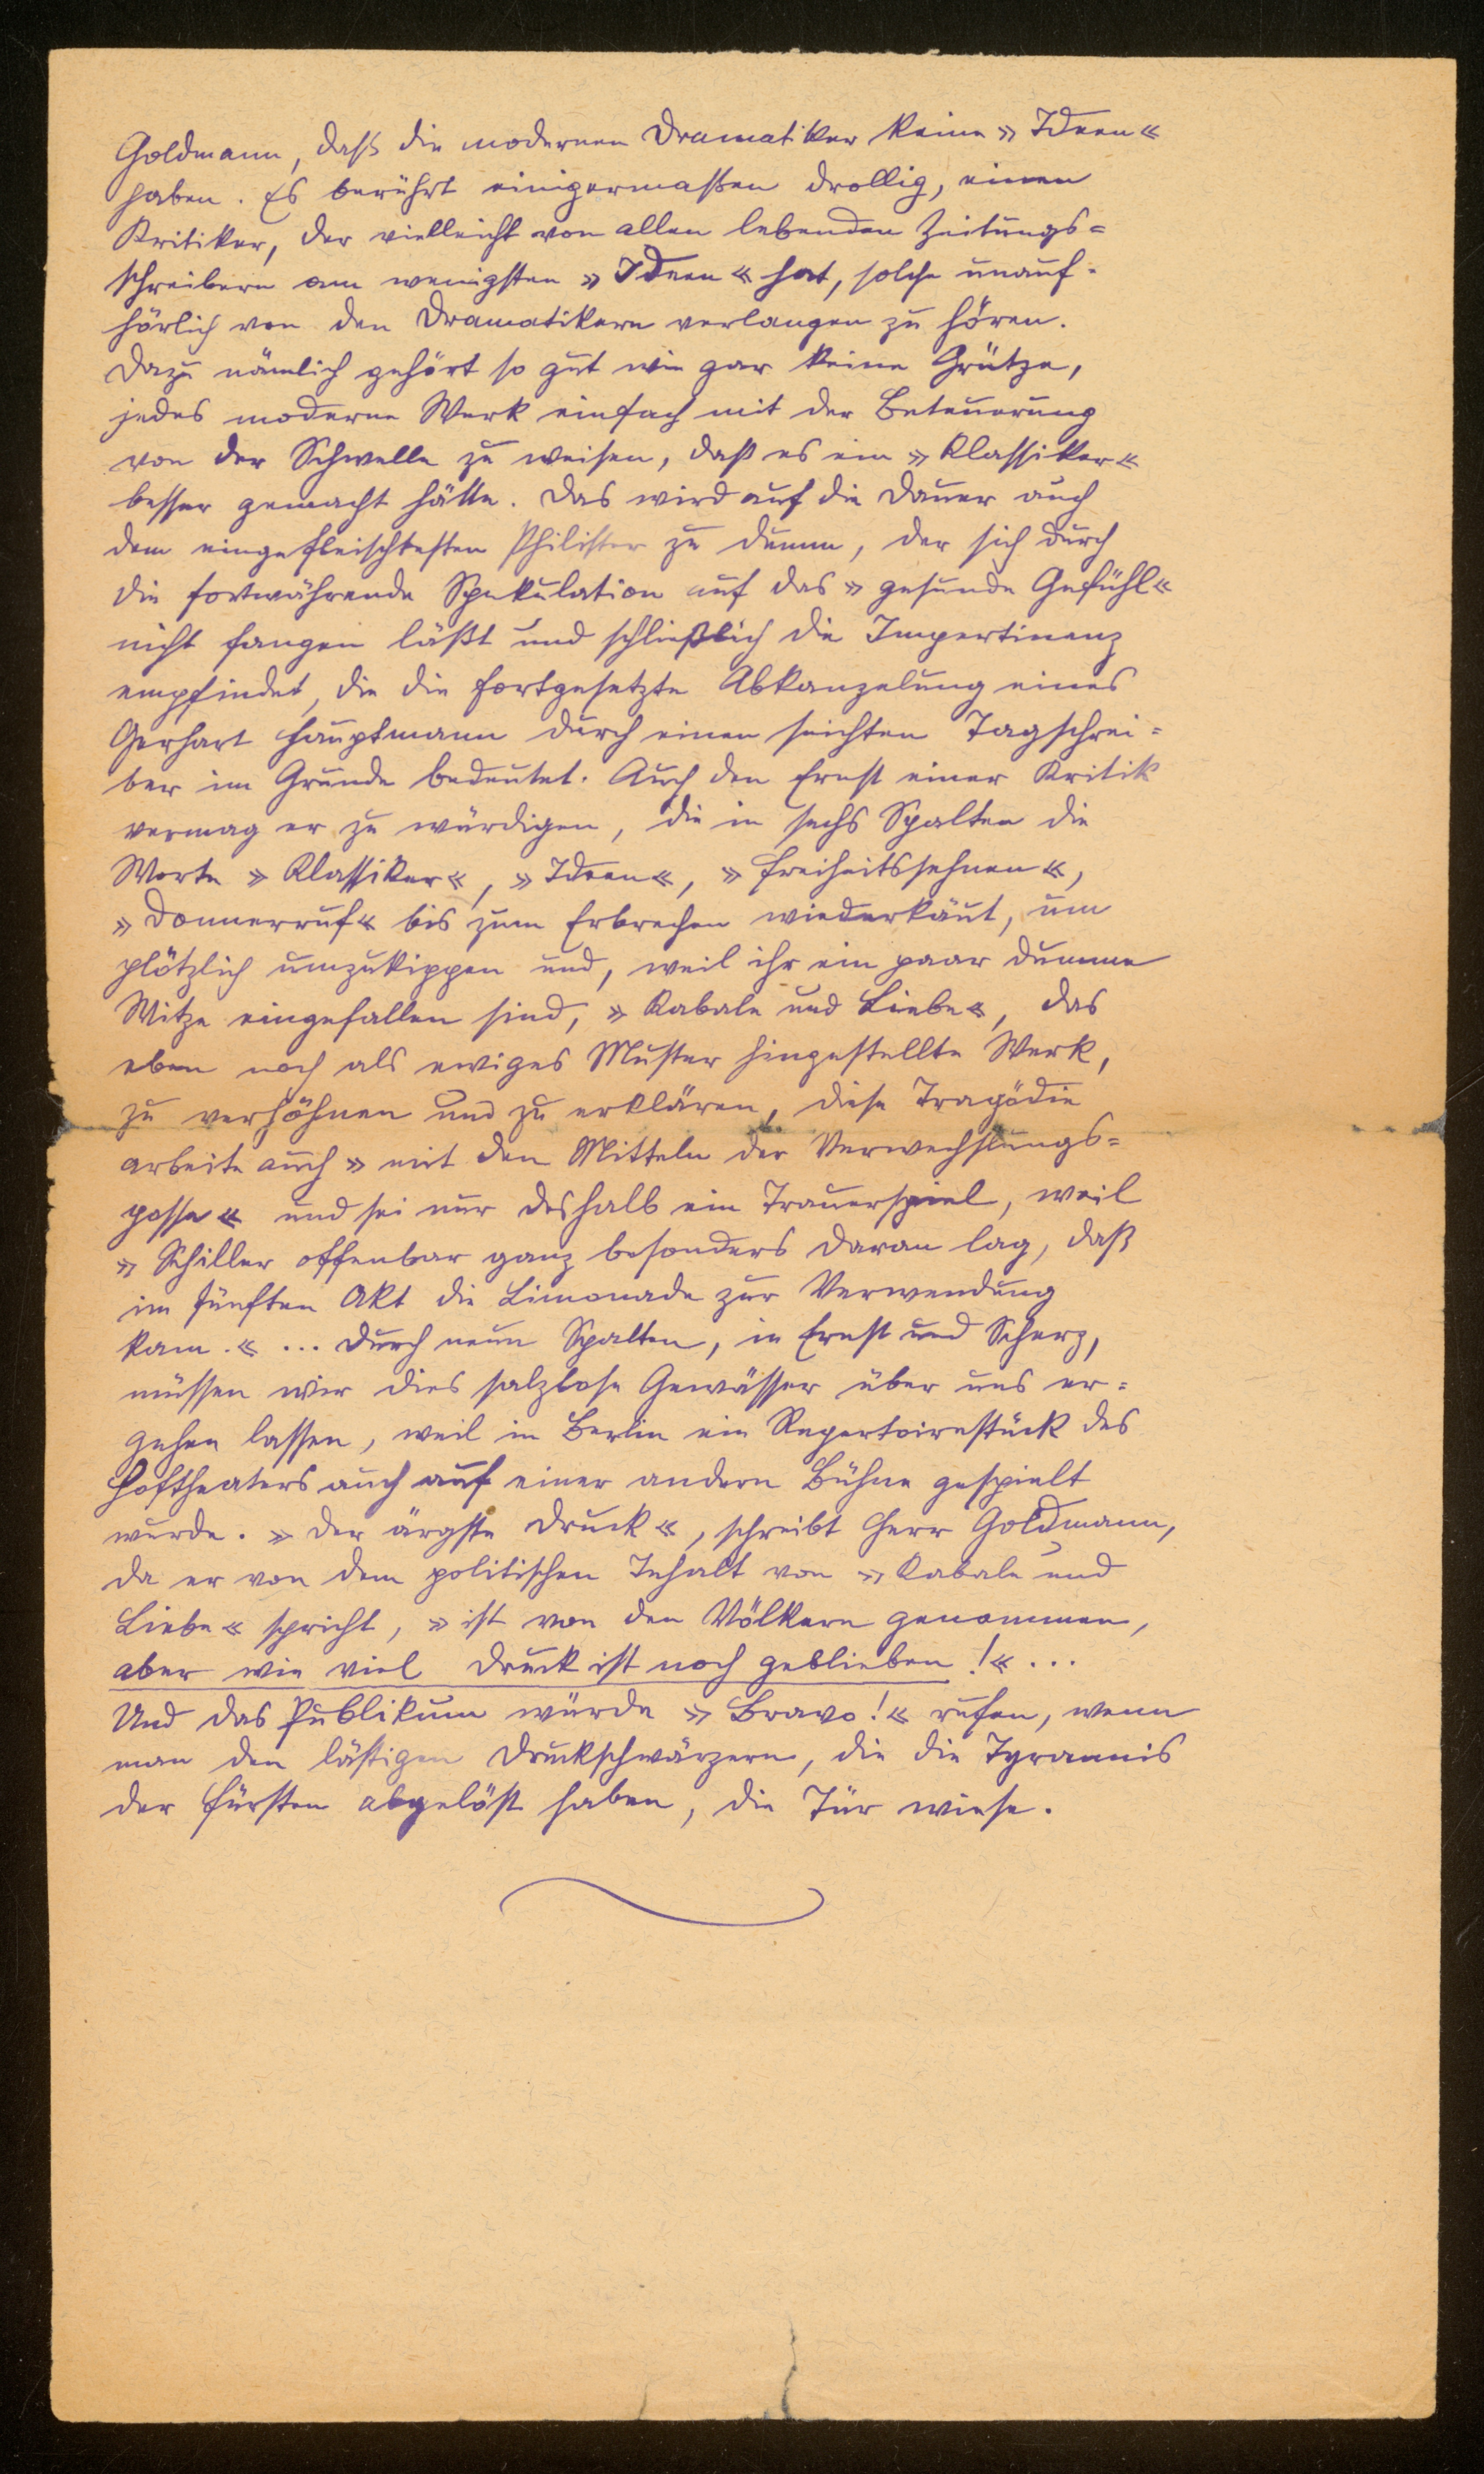 Goldmann, daß die modernen Dramatiker keine » Ideen «
haben. Es berührt einigermaßen drollig, einen
Kritiker, der vielleicht von allen lebenden Zeitungs=
schreibern am wenigsten » Ideen « hat, solche unauf=
hörlich von den Dramatikern verlangen zu hören.
Dazu nämlich gehört so gut wie gar keine Grütze,
jedes moderne Werk einfach mit der Beteuerung
von der Schwelle zu weisen, daß es ein » Klassiker «
besser gemacht hätte. Das wird auf die Dauer auch
dem eingefleischtesten Philister zu dumm, der sich durch
die fortwährende Spekulation auf das » gesunde Gefühl «
nicht fangen läßt und schließlich die Impertinenz
empfindet, die die fortgesetzte Abkanzelung eines
Gerhart Hauptmann durch einen seichten Tagschrei=
ber im Grunde bedeutet. Auch den Ernst einer Kritik
vermag er zu würdigen, die in sechs Spalten die
Worte » Klassiker «, » Ideen «, » Freiheitssehnen «,
» Donnerruf « bis zum Erbrechen wiederkäut, um
plötzlich umzukippen und, weil ihr ein paar dumme
Witze eingefallen sind, » Kabale und Liebe «, das
eben noch als ewiges Muster hingestellte Werk,
zu verhöhnen und zu erklären, diese Tragödie
arbeite auch » mit den Mitteln der Verwechslungs=
posse « und sei nur deshalb ein Trauerspiel, weil
» Schiller offenbar ganz besonders daran lag, daß
im fünften Akt die Limonade zur Verwendung
kam. « ... Durch neun Spalten, in Ernst und Scherz,
müssen wir dies salzlose Gewässer über uns er=
gehen lassen, weil in Berlin ein Repertoirestück des
Hoftheaters auch auf einer andern Bühne gespielt
wurde. » Der ärgste Druck «, schreibt Herr Goldmann,
da er von dem politischen Inhalt von » Kabale und
Liebe « spricht, » ist von den Völkern genommen,
aber wie viel Druck ist noch geblieben! « ...
Und das Publikum würde » Bravo! « rufen, wenn
man den lästigen Druckschwärzern, die die Tyrannis
der Fürsten abgelöst haben, die Tür wiese.